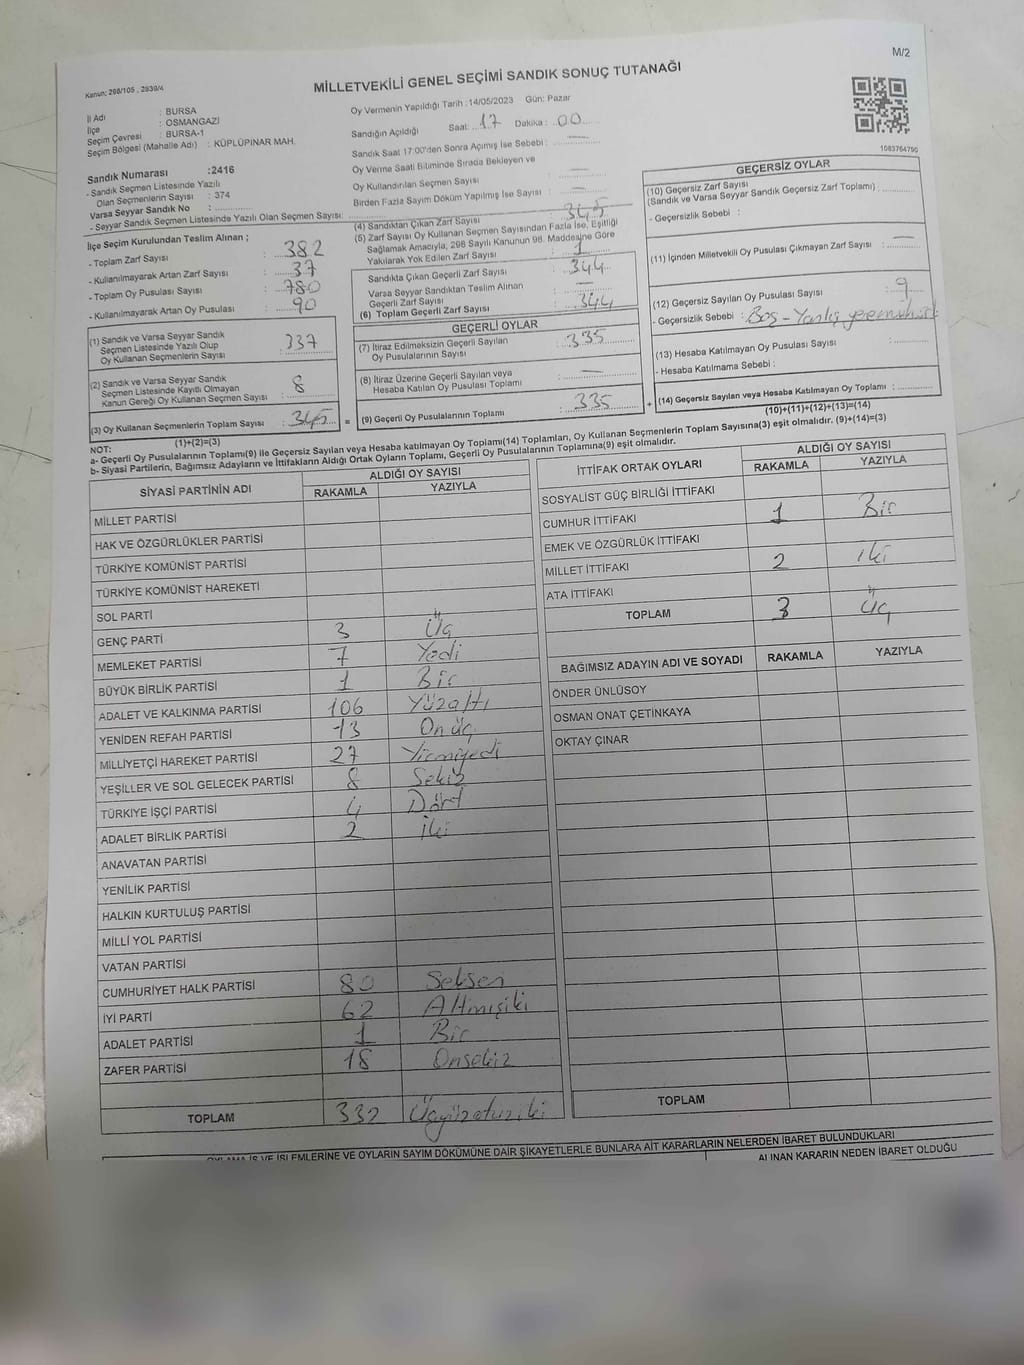 M/2
Kanun: 298/105, 2839/4
MİLLETVEKİLİ GENEL SEÇİMİ SANDIK SONUÇ TUTANAĞI
İl Adı : BURSA
İlçe : OSMANGAZİ
Seçim Çevresi : BURSA-1
Seçim Bölgesi (Mahalle Adı) : KÜPLÜPINAR MAH.
Sandık Numarası :2416
- Sandık Seçmen Listesinde Yazılı
Olan Seçmenlerin Sayısı : 374
Varsa Seyyar Sandık No :
- Seyyar Sandık Seçmen Listesinde Yazılı Olan Seçmen Sayısı:
Oy Vermenin Yapıldığı Tarih :14/05/2023 Gün: Pazar
Sandığın Açıldığı Saat: 17 Dakika : 00
Sandık Saat 17:00'den Sonra Açımış İse Sebebi : —
Oy Verme Saati Bitiminde Sırada Bekleyen ve
Oy Kullandırılan Seçmen Sayısı —
Birden Fazla Sayım Döküm Yapılmış İse Sayısı : —
1083764790
İlçe Seçim Kurulundan Teslim Alınan ;
- Toplam Zarf Sayısı : 382
- Kullanılmayarak Artan Zarf Sayısı : 37
- Toplam Oy Pusulası Sayısı : 780
- Kullanılmayarak Artan Oy Pusulası : 90
(1) Sandık ve Varsa Seyyar Sandık
Seçmen Listesinde Yazılı Olup
Oy Kullanan Seçmenlerin Sayısı : 337
(2) Sandık ve Varsa Seyyar Sandık
Seçmen Listesinde Kayıtlı Olmayan
Kanun Gereği Oy Kullanan Seçmen Sayısı : 8
(3) Oy Kullanan Seçmenlerin Toplam Sayısı : 345 =
(1)+(2)=(3)
(4) Sandıktan Çıkan Zarf Sayısı : 345
(5) Zarf Sayısı Oy Kullanan Seçmen Sayısından Fazla İse, Eşitliği
Sağlamak Amacıyla, 298 Sayılı Kanunun 98. Maddesine Göre
Yakılarak Yok Edilen Zarf Sayısı : 1
Sandıkta Çıkan Geçerli Zarf Sayısı : 344
Varsa Seyyar Sandıktan Teslim Alınan
Geçerli Zarf Sayısı : —
(6) Toplam Geçerli Zarf Sayısı : 344
GEÇERLİ OYLAR
(7) İtiraz Edilmeksizin Geçerli Sayılan
Oy Pusulalarının Sayısı : 335
(8) İtiraz Üzerine Geçerli Sayılan veya
Hesaba Katılan Oy Pusulası Toplamı : —
(9) Geçerli Oy Pusulalarının Toplamı : 335 +
GEÇERSİZ OYLAR
(10) Geçersiz Zarf Sayısı
(Sandık ve Varsa Seyyar Sandık Geçersiz Zarf Toplamı) :
- Geçersizlik Sebebi :
(11) İçinden Milletvekili Oy Pusulası Çıkmayan Zarf Sayısı : —
(12) Geçersiz Sayılan Oy Pusulası Sayısı : 9
- Geçersizlik Sebebi : Boş - Yanlış
(13) Hesaba Katılmayan Oy Pusulası Sayısı :
- Hesaba Katılmama Sebebi :
(14) Geçersiz Sayılan veya Hesaba Katılmayan Oy Toplamı :
(10)+(11)+(12)+(13)=(14)
NOT:
a- Geçerli Oy Pusulalarının Toplam(9) ile Geçersiz Sayılan veya Hesaba katılmayan Oy Toplamı(14) Toplamları, Oy Kullanan Seçmenlerin Toplam Sayısına(3) eşit olmalıdır. (9)+(14)=(3)
b- Siyasi Partilerin, Bağımsız Adayların ve İttifakların Aldığı Ortak Oyların Toplamı, Geçerli Oy Pusulalarının Toplamına(9) eşit olmalıdır.
SİYASİ PARTİNİN ADI ALDIĞI OY SAYISI
RAKAMLA YAZIYLA
MİLLET PARTİSİ
HAK VE ÖZGÜRLÜKLER PARTİSİ
TÜRKİYE KOMÜNİST PARTİSİ
TÜRKİYE KOMÜNİST HAREKETİ
SOL PARTİ
GENÇ PARTİ 3 Üç
MEMLEKET PARTİSİ 7 Yedi
BÜYÜK BİRLİK PARTİSİ 1 Bir
ADALET VE KALKINMA PARTİSİ 106 Yüzaltı
YENİDEN REFAH PARTİSİ 13 On üç
MİLLİYETÇİ HAREKET PARTİSİ 27 Yirmiyedi
YEŞİLLER VE SOL GELECEK PARTİSİ 8 Sekiz
TÜRKİYE İŞÇİ PARTİSİ 4 Dört
ADALET BİRLİK PARTİSİ 2 İki
ANAVATAN PARTİSİ
YENİLİK PARTİSİ
HALKIN KURTULUŞ PARTİSİ
MİLLİ YOL PARTİSİ
VATAN PARTİSİ
CUMHURİYET HALK PARTİSİ 80 Seksen
İYİ PARTİ 62 Altmışiki
ADALET PARTİSİ 1 Bir
ZAFER PARTİSİ 18 Onsekiz
TOPLAM 332 Üçyüzotuziki
İTTİFAK ORTAK OYLARI ALDIĞI OY SAYISI
RAKAMLA YAZIYLA
SOSYALİST GÜÇ BİRLİĞİ İTTİFAKI
CUMHUR İTTİFAKI 1 Bir
EMEK VE ÖZGÜRLÜK İTTİFAKI
MİLLET İTTİFAKI 2 iki
ATA İTTİFAKI
TOPLAM 3 Üç
BAĞIMSIZ ADAYIN ADI VE SOYADI RAKAMLA YAZIYLA
ÖNDER ÜNLÜSOY
OSMAN ONAT ÇETİNKAYA
OKTAY ÇINAR
TOPLAM
OYLAMA İŞ VE İŞLEMLERİNE VE OYLARIN SAYIM DÖKÜMÜNE DAİR ŞİKAYETLERLE BUNLARA AİT KARARLARIN NELERDEN İBARET BULUNDUKLARI
ALINAN KARARIN NEDEN İBARET OLDUĞU